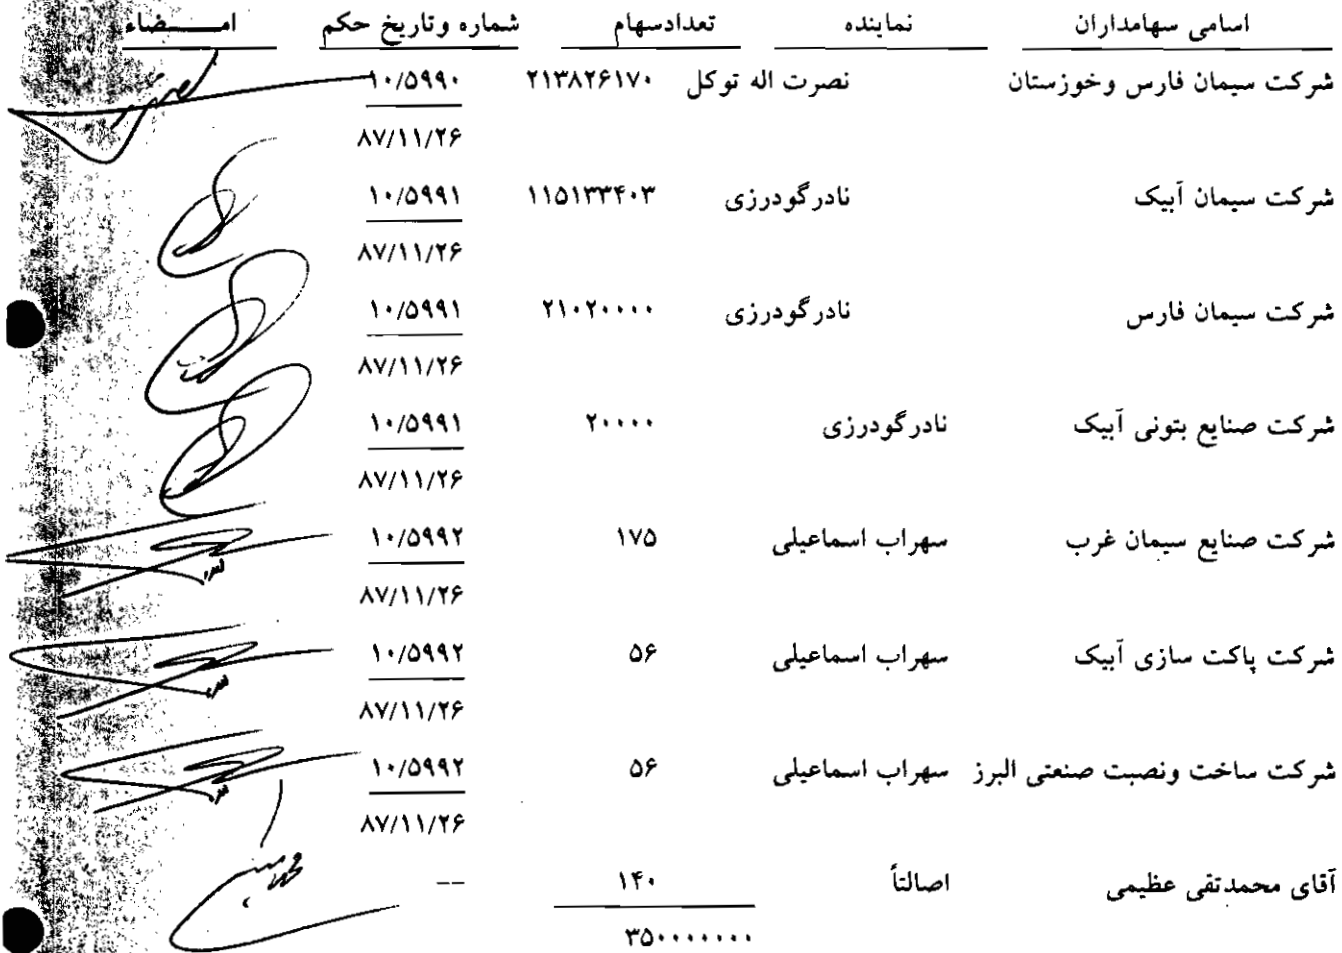 اسامی سهامداران نماینده تعدادسهام شماره وتاریخ حکم امـــضاء
شرکت سیمان فارس وخوزستان نصرت اله توکل ۲۱۳۸۲۶۱۷۰ ۱۰/۵۹۹۰
۸۷/۱۱/۲۶
شرکت سیمان آبیک نادرگودرزی ۱۱۵۱۳۳۴۰۳ ۱۰/۵۹۹۱
۸۷/۱۱/۲۶
شرکت سیمان فارس نادرگودرزی ۲۱۰۲۰۰۰۰ ۱۰/۵۹۹۱
۸۷/۱۱/۲۶
شرکت صنایع بتونی آبیک نادرگودرزی ۲۰۰۰۰ ۱۰/۵۹۹۱
۸۷/۱۱/۲۶
شرکت صنایع سیمان غرب سهراب اسماعیلی ۱۷۵ ۱۰/۵۹۹۲
۸۷/۱۱/۲۶
شرکت پاکت سازی آبیک سهراب اسماعیلی ۵۶ ۱۰/۵۹۹۲
۸۷/۱۱/۲۶
شرکت ساخت ونصبت صنعتی البرز سهراب اسماعیلی ۵۶ ۱۰/۵۹۹۲
۸۷/۱۱/۲۶
آقای محمدتقی عظیمی اصالتأ ۱۴۰ --
۳۵۰۰۰۰۰۰۰